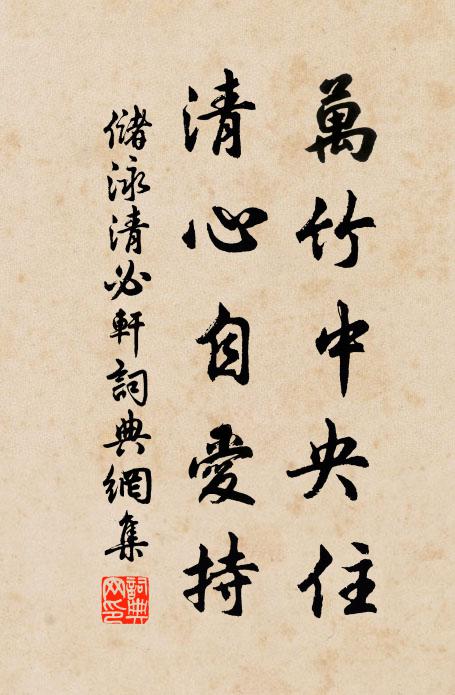 萬竹中央住
清心自愛持
儲泳清必軒詞典網集
詞典網印